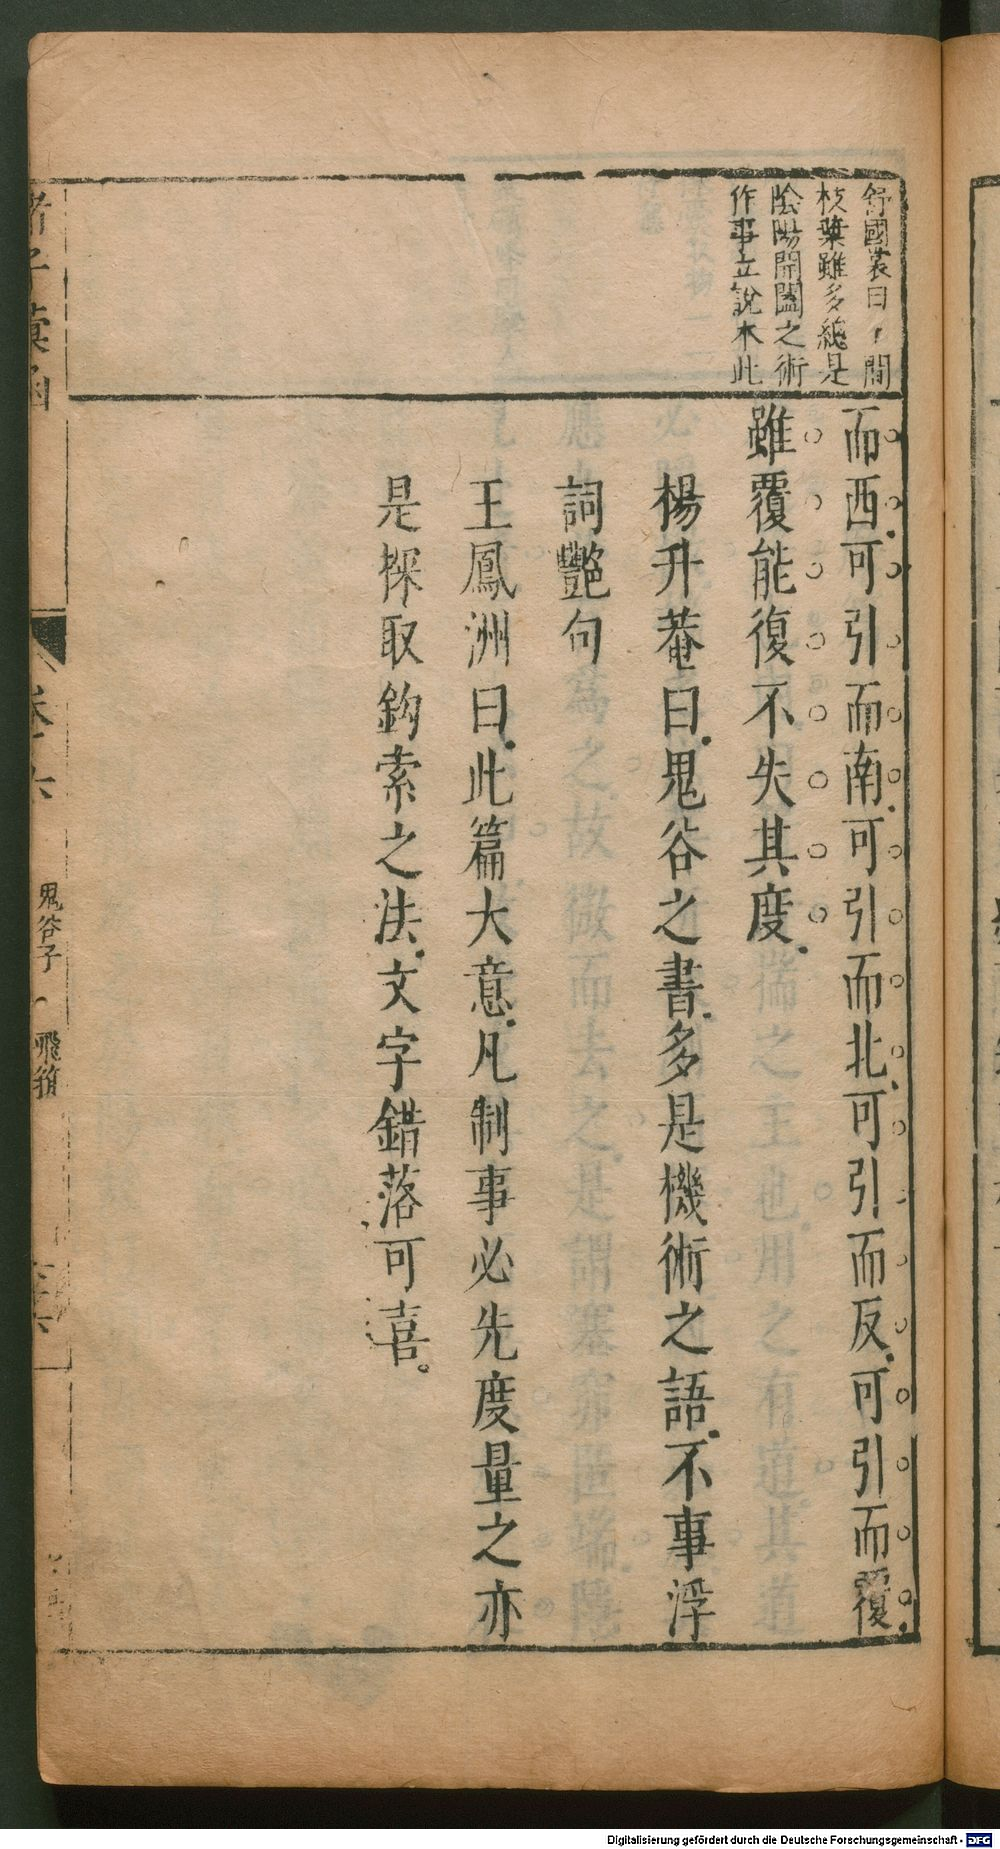 舒國裳曰，間
枝葉雖多總是
陰陽開闔之術
作事立說本此
而西可引而南可引而北可引而反可引而覆
雖覆能復不失其度
楊升菴曰鬼谷之書多是機術之語不事浮
詞艷句
王鳳洲曰此篇大意凡制事必先度量之亦
是探取鈎索之法文字錯落可喜
諸子彙函
卷六
鬼谷子
飛箝
Digitalisierung gefördert durch die Deutsche Forschungsgemeinschaft - DFG